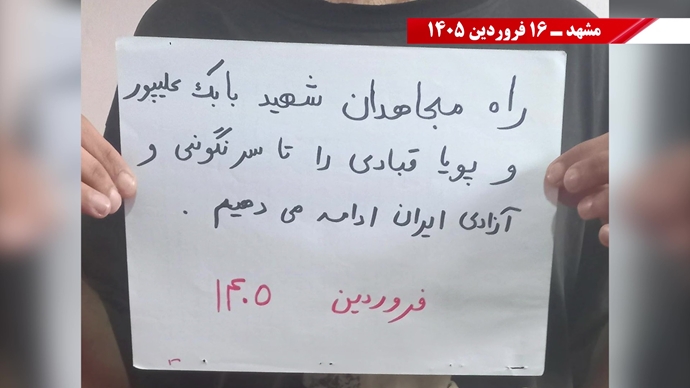 مشهد ــ ۱۶ فروردین ۱۴۰۵
راه مجاهدان شهید بابک علیپور
و پویا قبادی را تا سرنگونی و
آزادی ایران ادامه می دهیم .
فروردین ۱۴۰۵